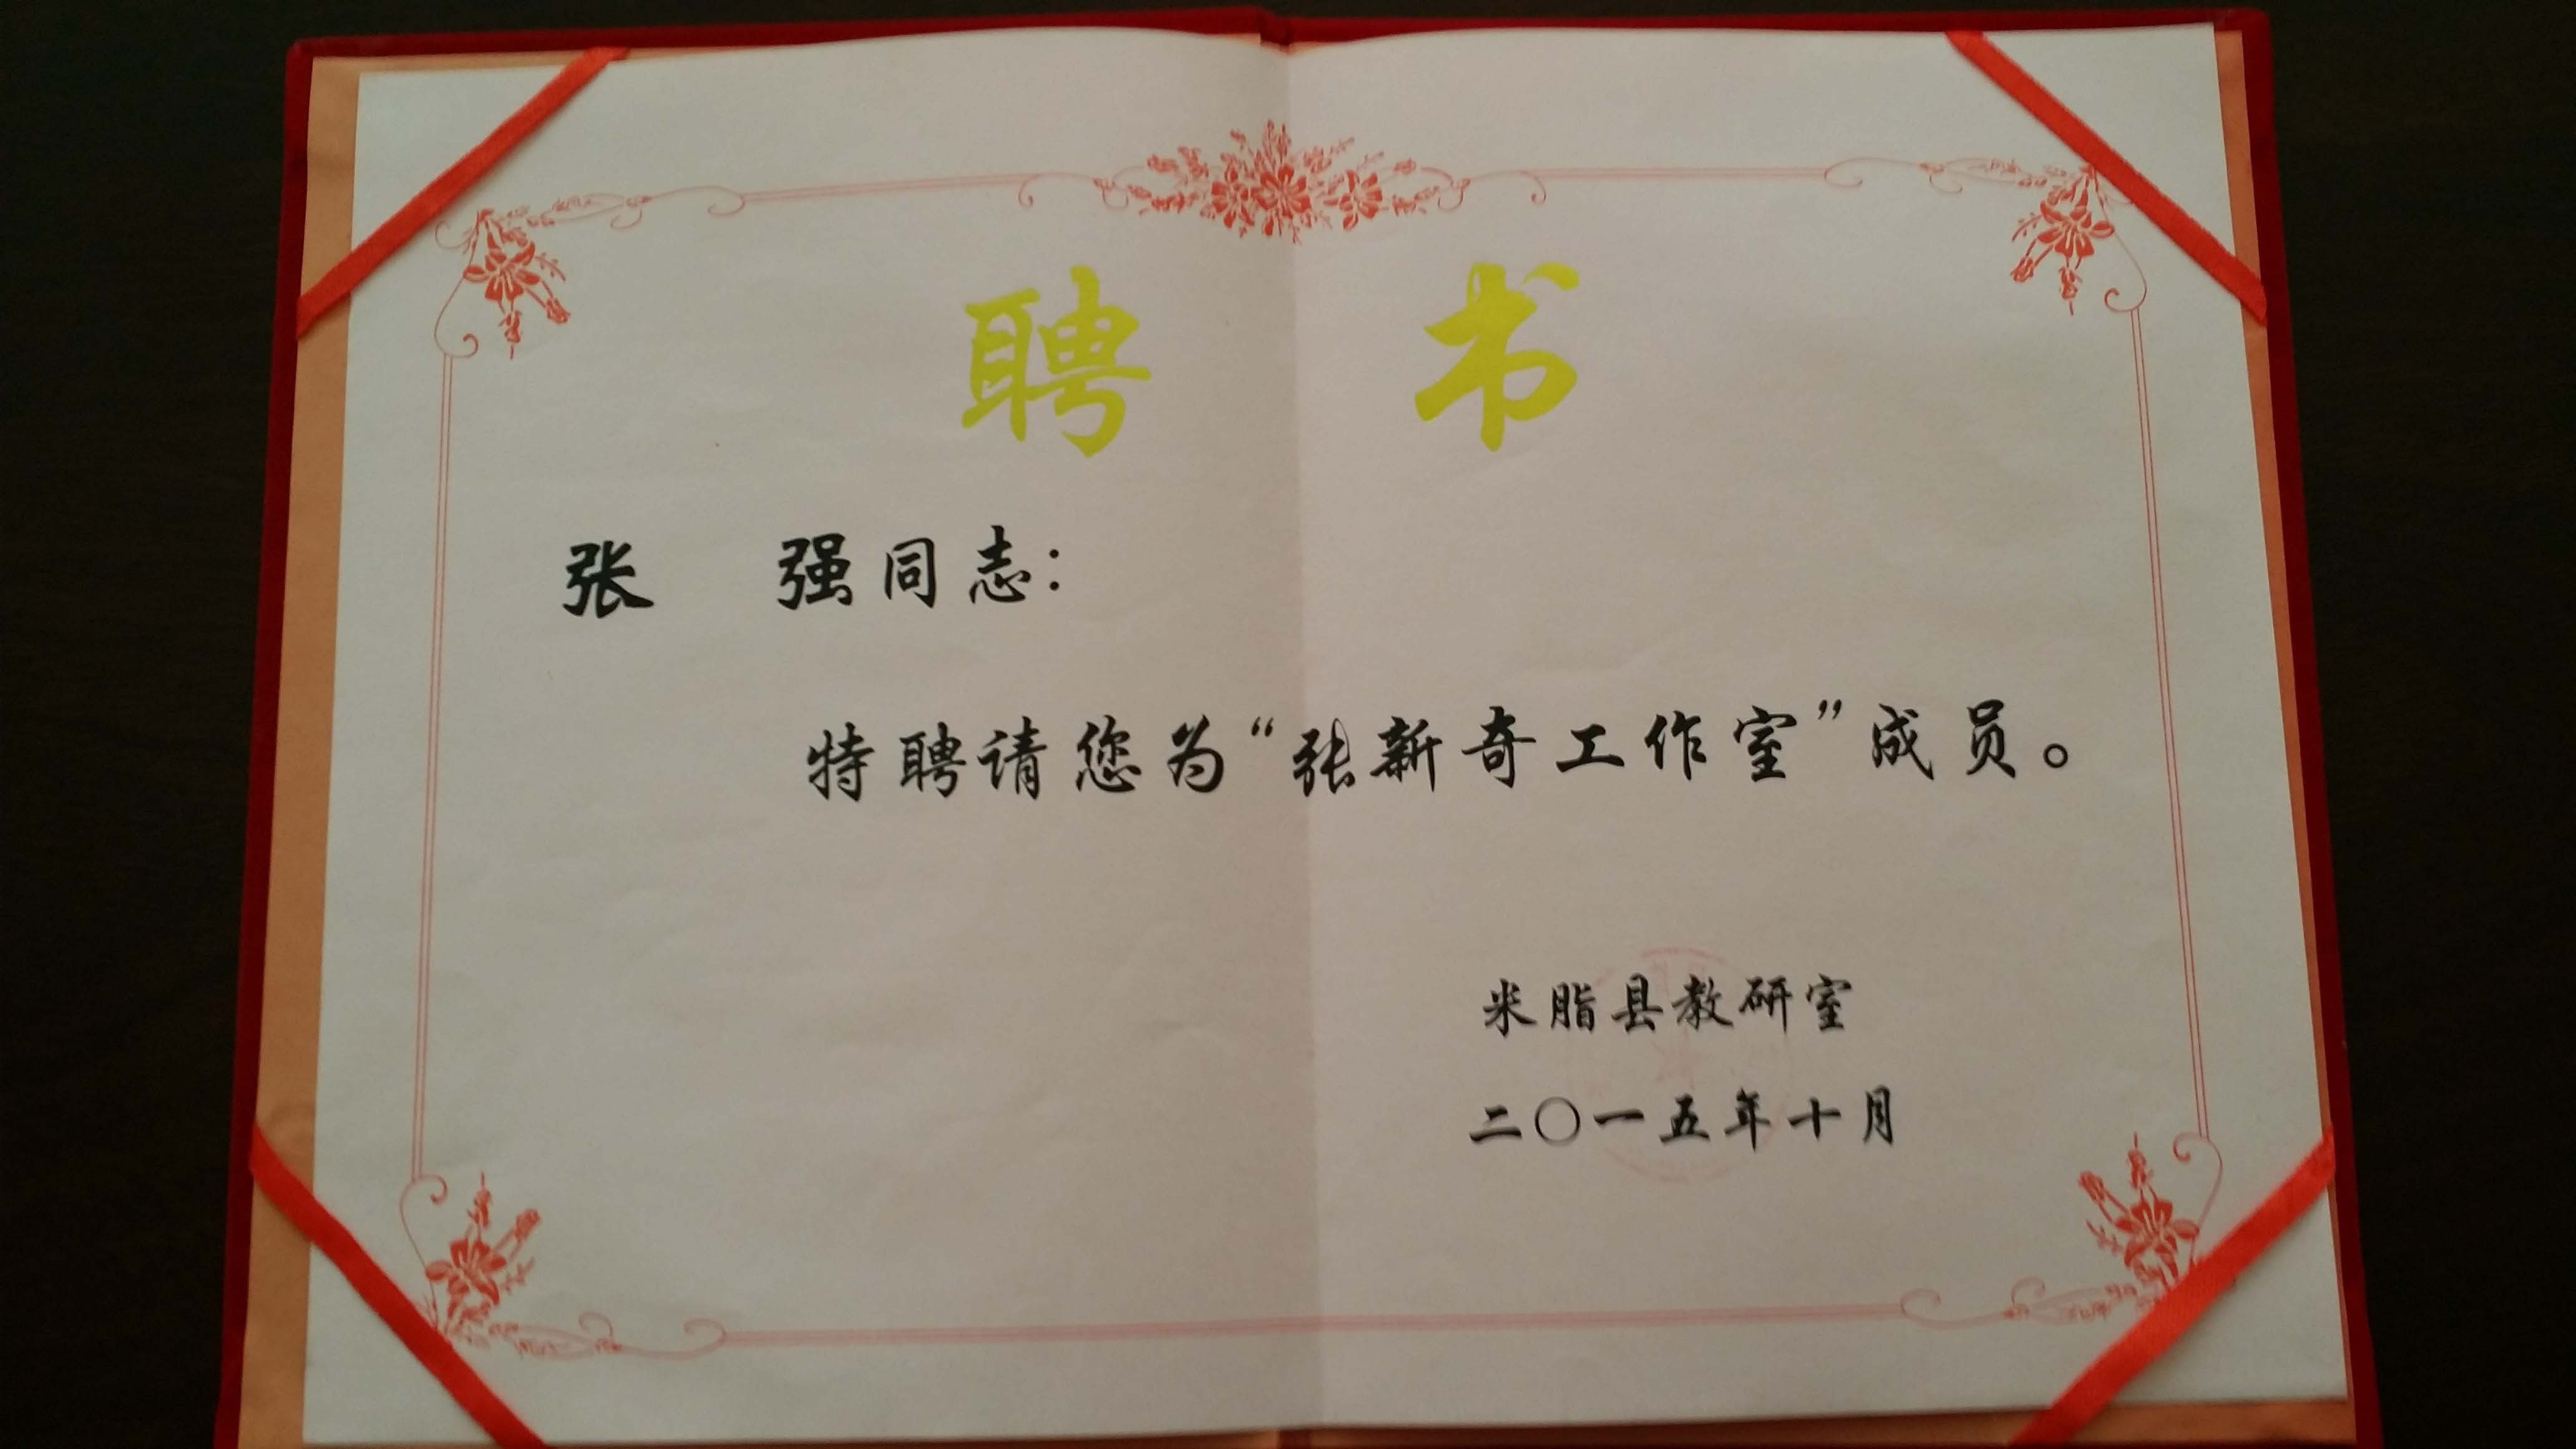 聘 书
张 强同志：
特聘请您为“张新奇工作室”成员。
米脂县教研室
二〇一五年十月